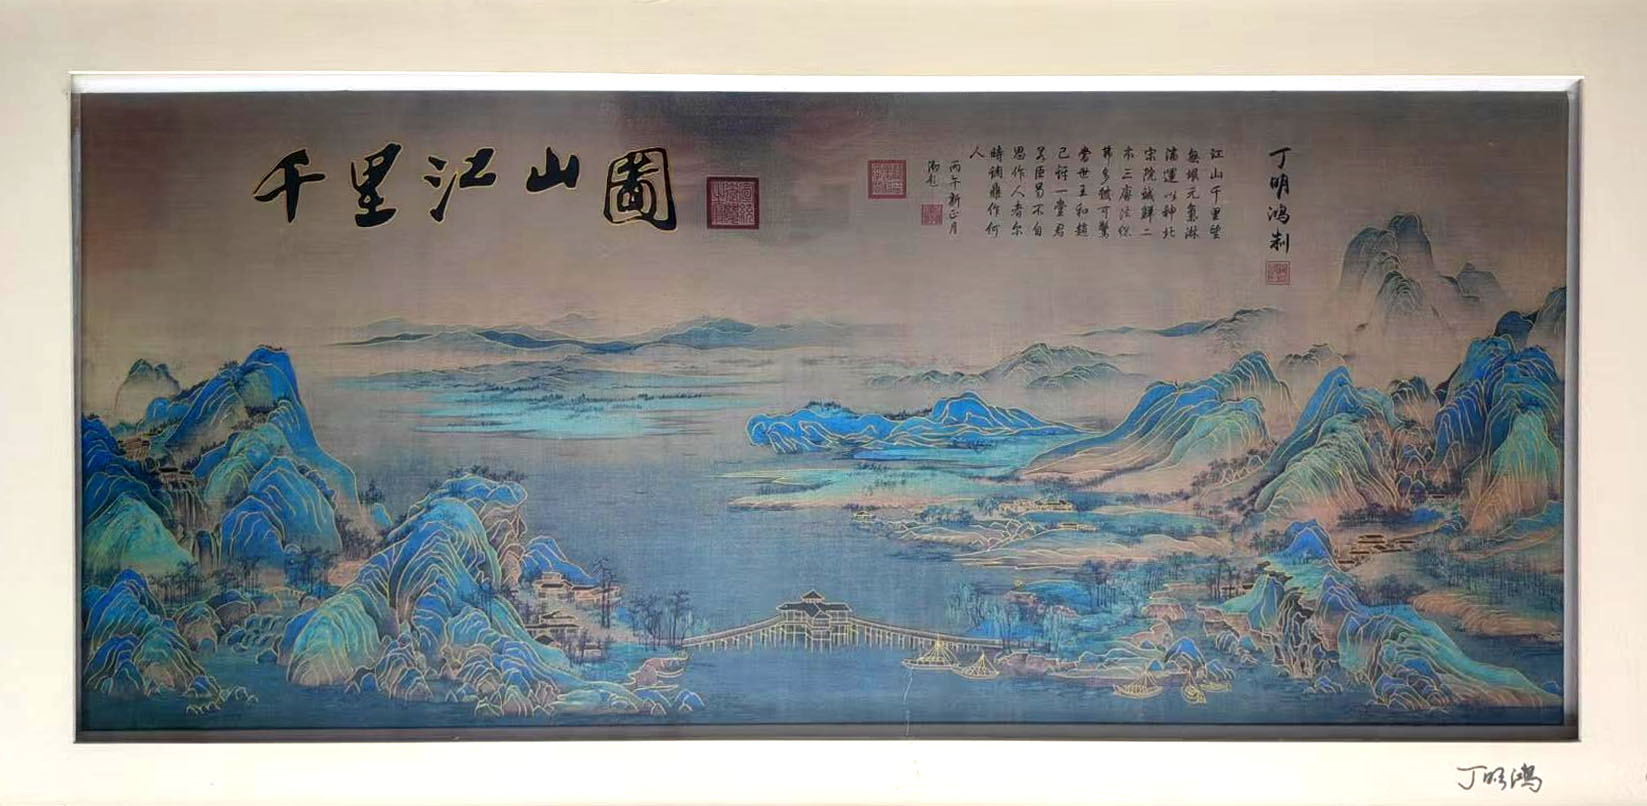 千里江山圖
丁明鸿制
江山千里望
無垠元氣淋
漓運以神北
宋院誠鮮二
本三唐法總
弗多皴可驚
當世王和趙
已訝一堂君
若臣曷不自
思作人者爾
時調鼎作何
人
丙午新正月
御題
丁明鸿